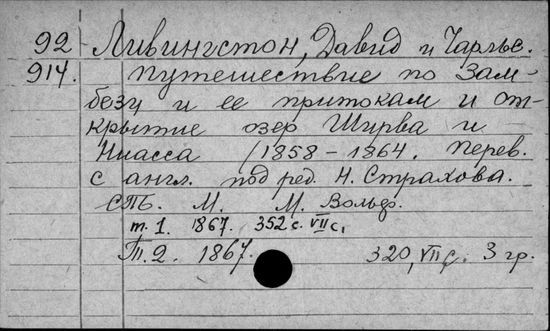 92 Ливингстон, Давид и Чарльс.
914. Путешествие по Зам-
безу и ее притокам и от-
крытие озер Ширва и
Ниасса /1858-1864. Перев.
с англ. под ред. Н. Страхова.
СПБ. М. М. Вольф.
т. 1. 1867. 352 с. VII с,
Т. 2. 1867. 320, VII с. 3 гр.